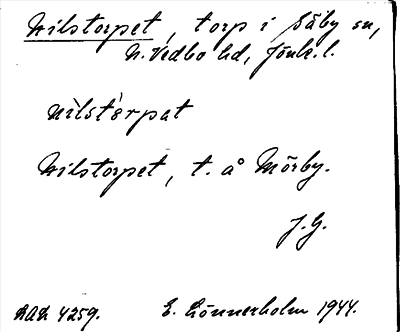 Nilstorpet, torp i Säby sn,
N. Vedbo hd, Jönk. l.
nìlstórpat
Nilstorpet, t. å Mörby.
J. G.
RAÄ 4259. E. Lönnerholm 1944.